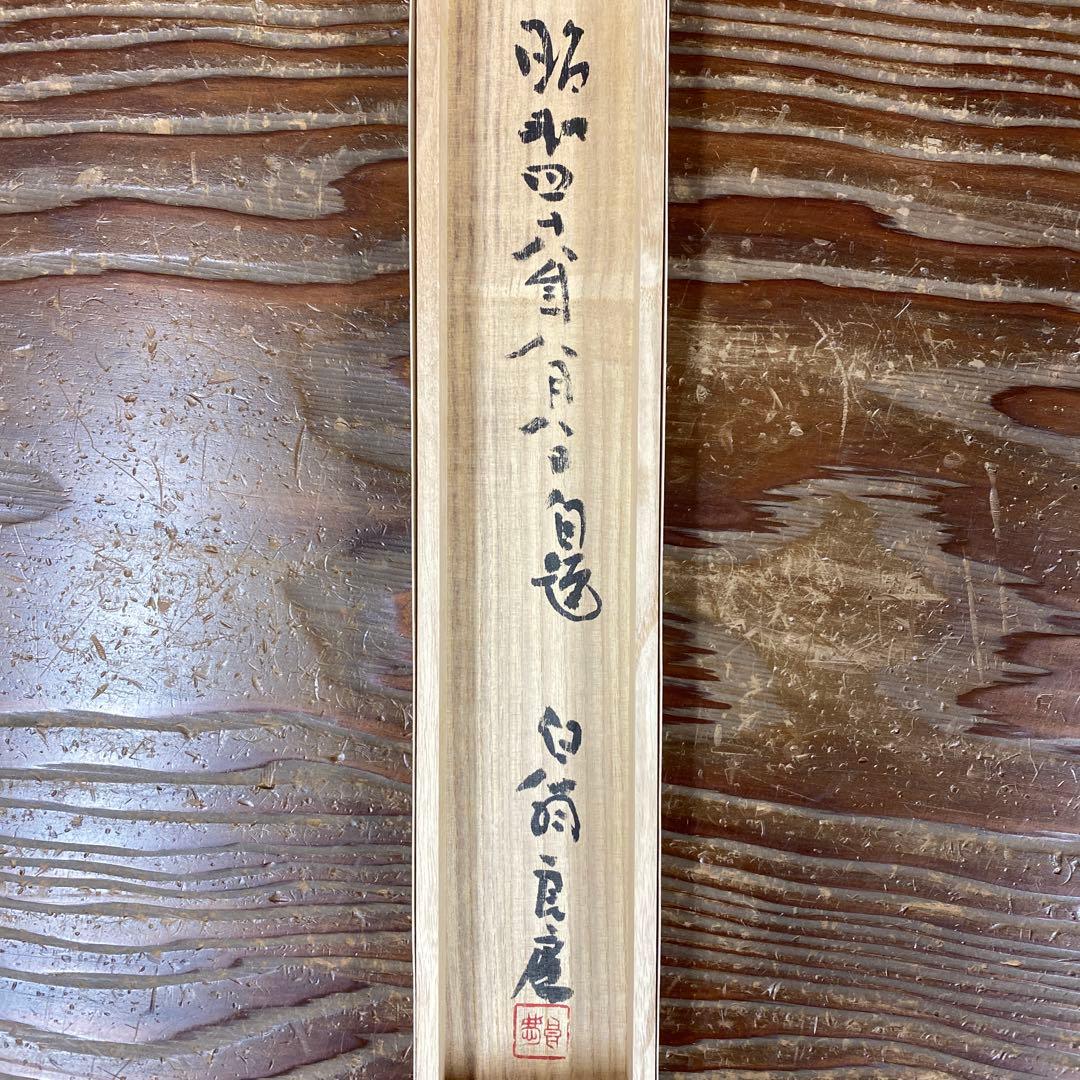 昭和四十八年八月八日自題 白翁良庵